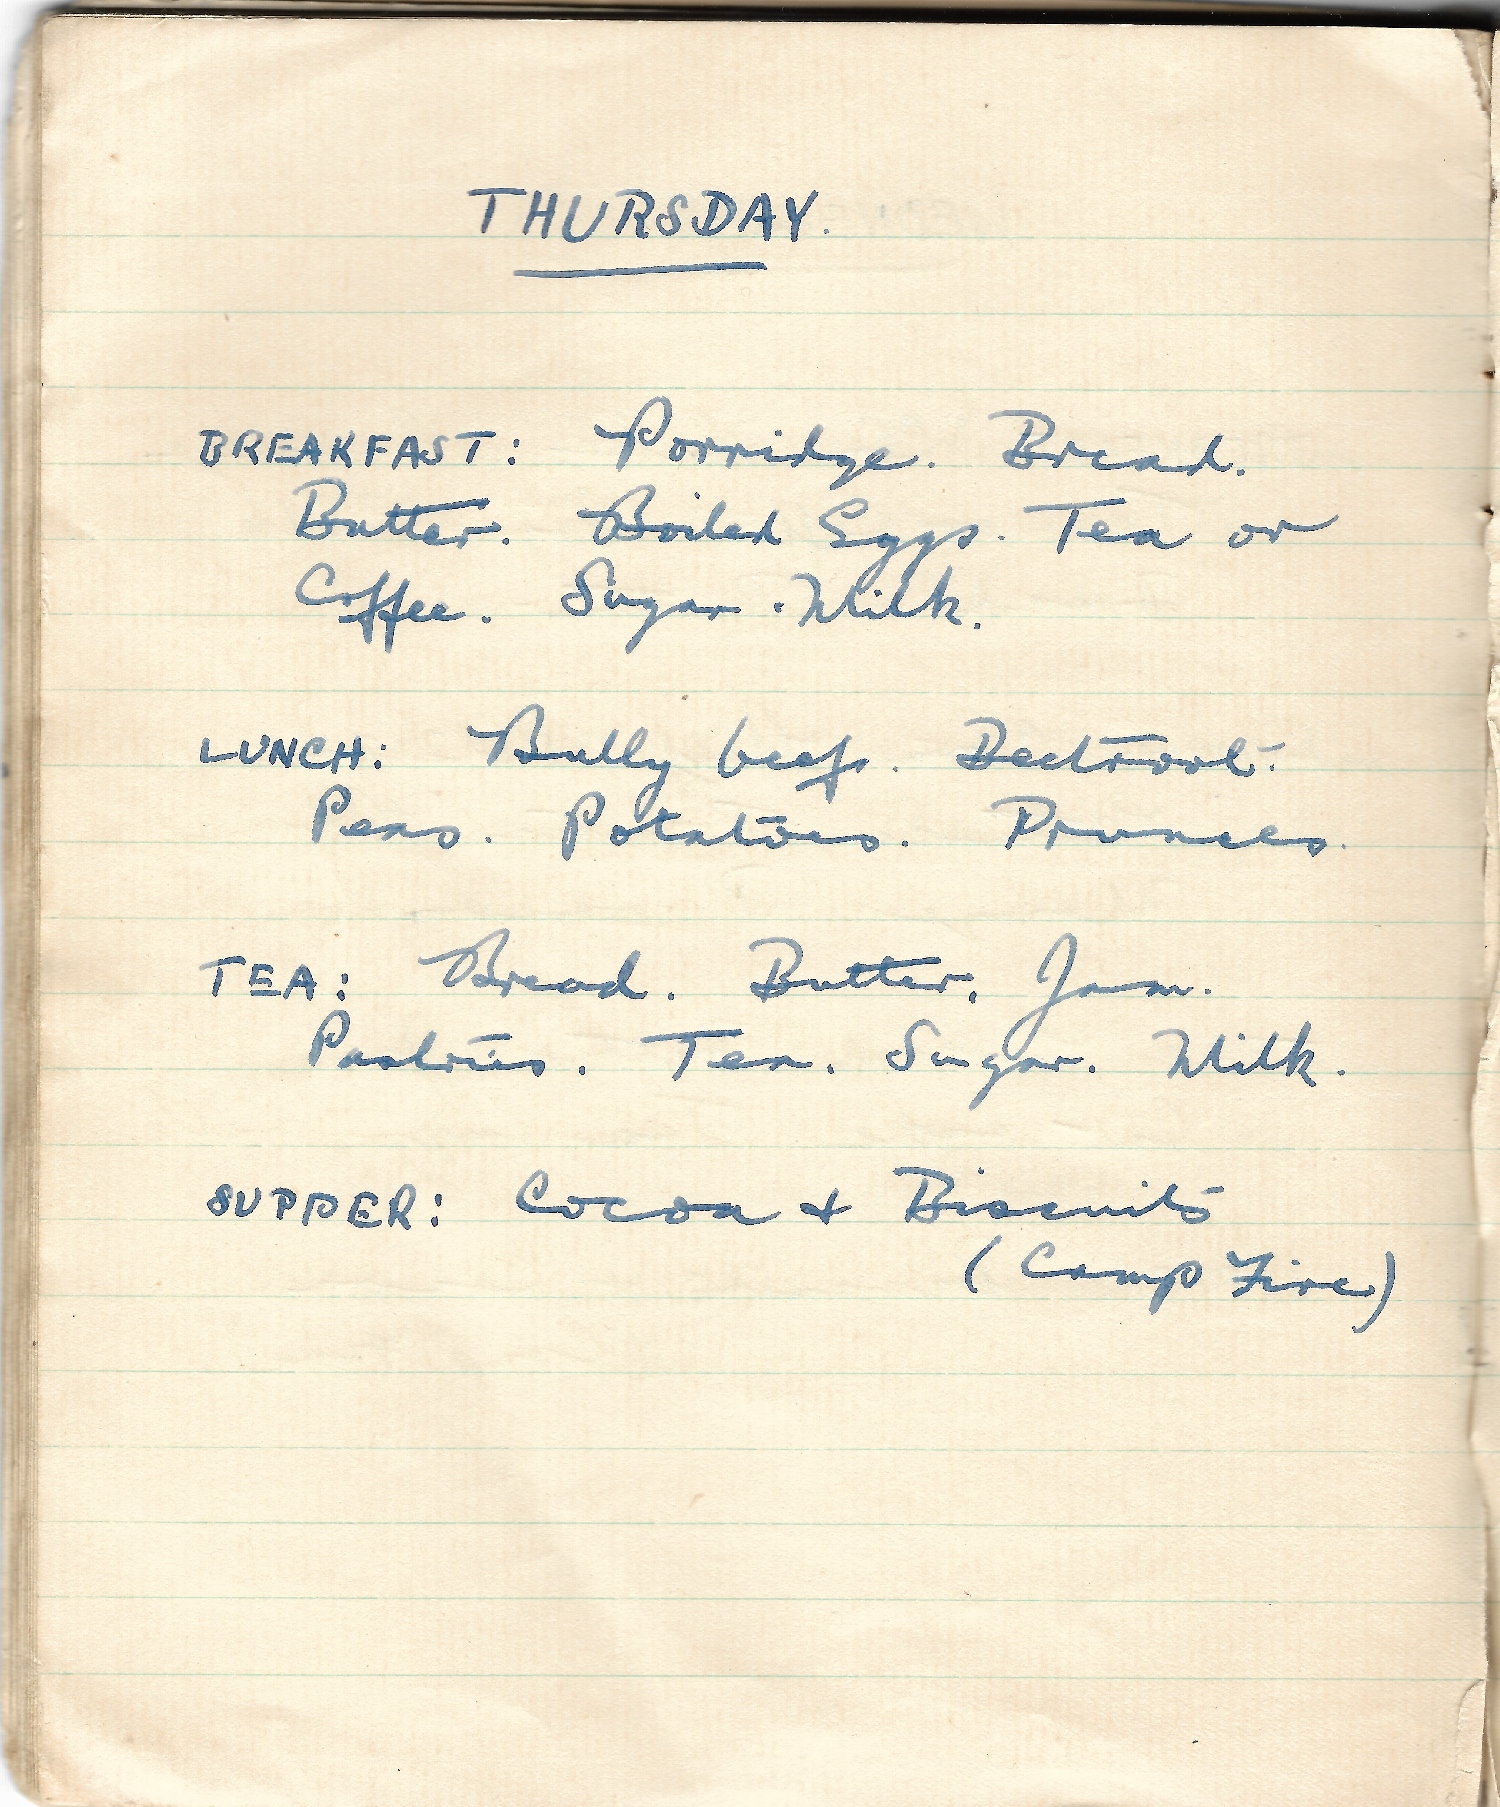 THURSDAY.
BREAKFAST: Porridge. Bread.
Butter. Boiled Eggs. Tea or
Coffee. Sugar. Milk.
LUNCH: Bully beef. Beetroot.
Peas. Potatoes. Prunes.
TEA: Bread. Butter. Jam.
Pastries. Tea. Sugar. Milk.
SUPPER: Cocoa + Biscuits
(Camp Fire)